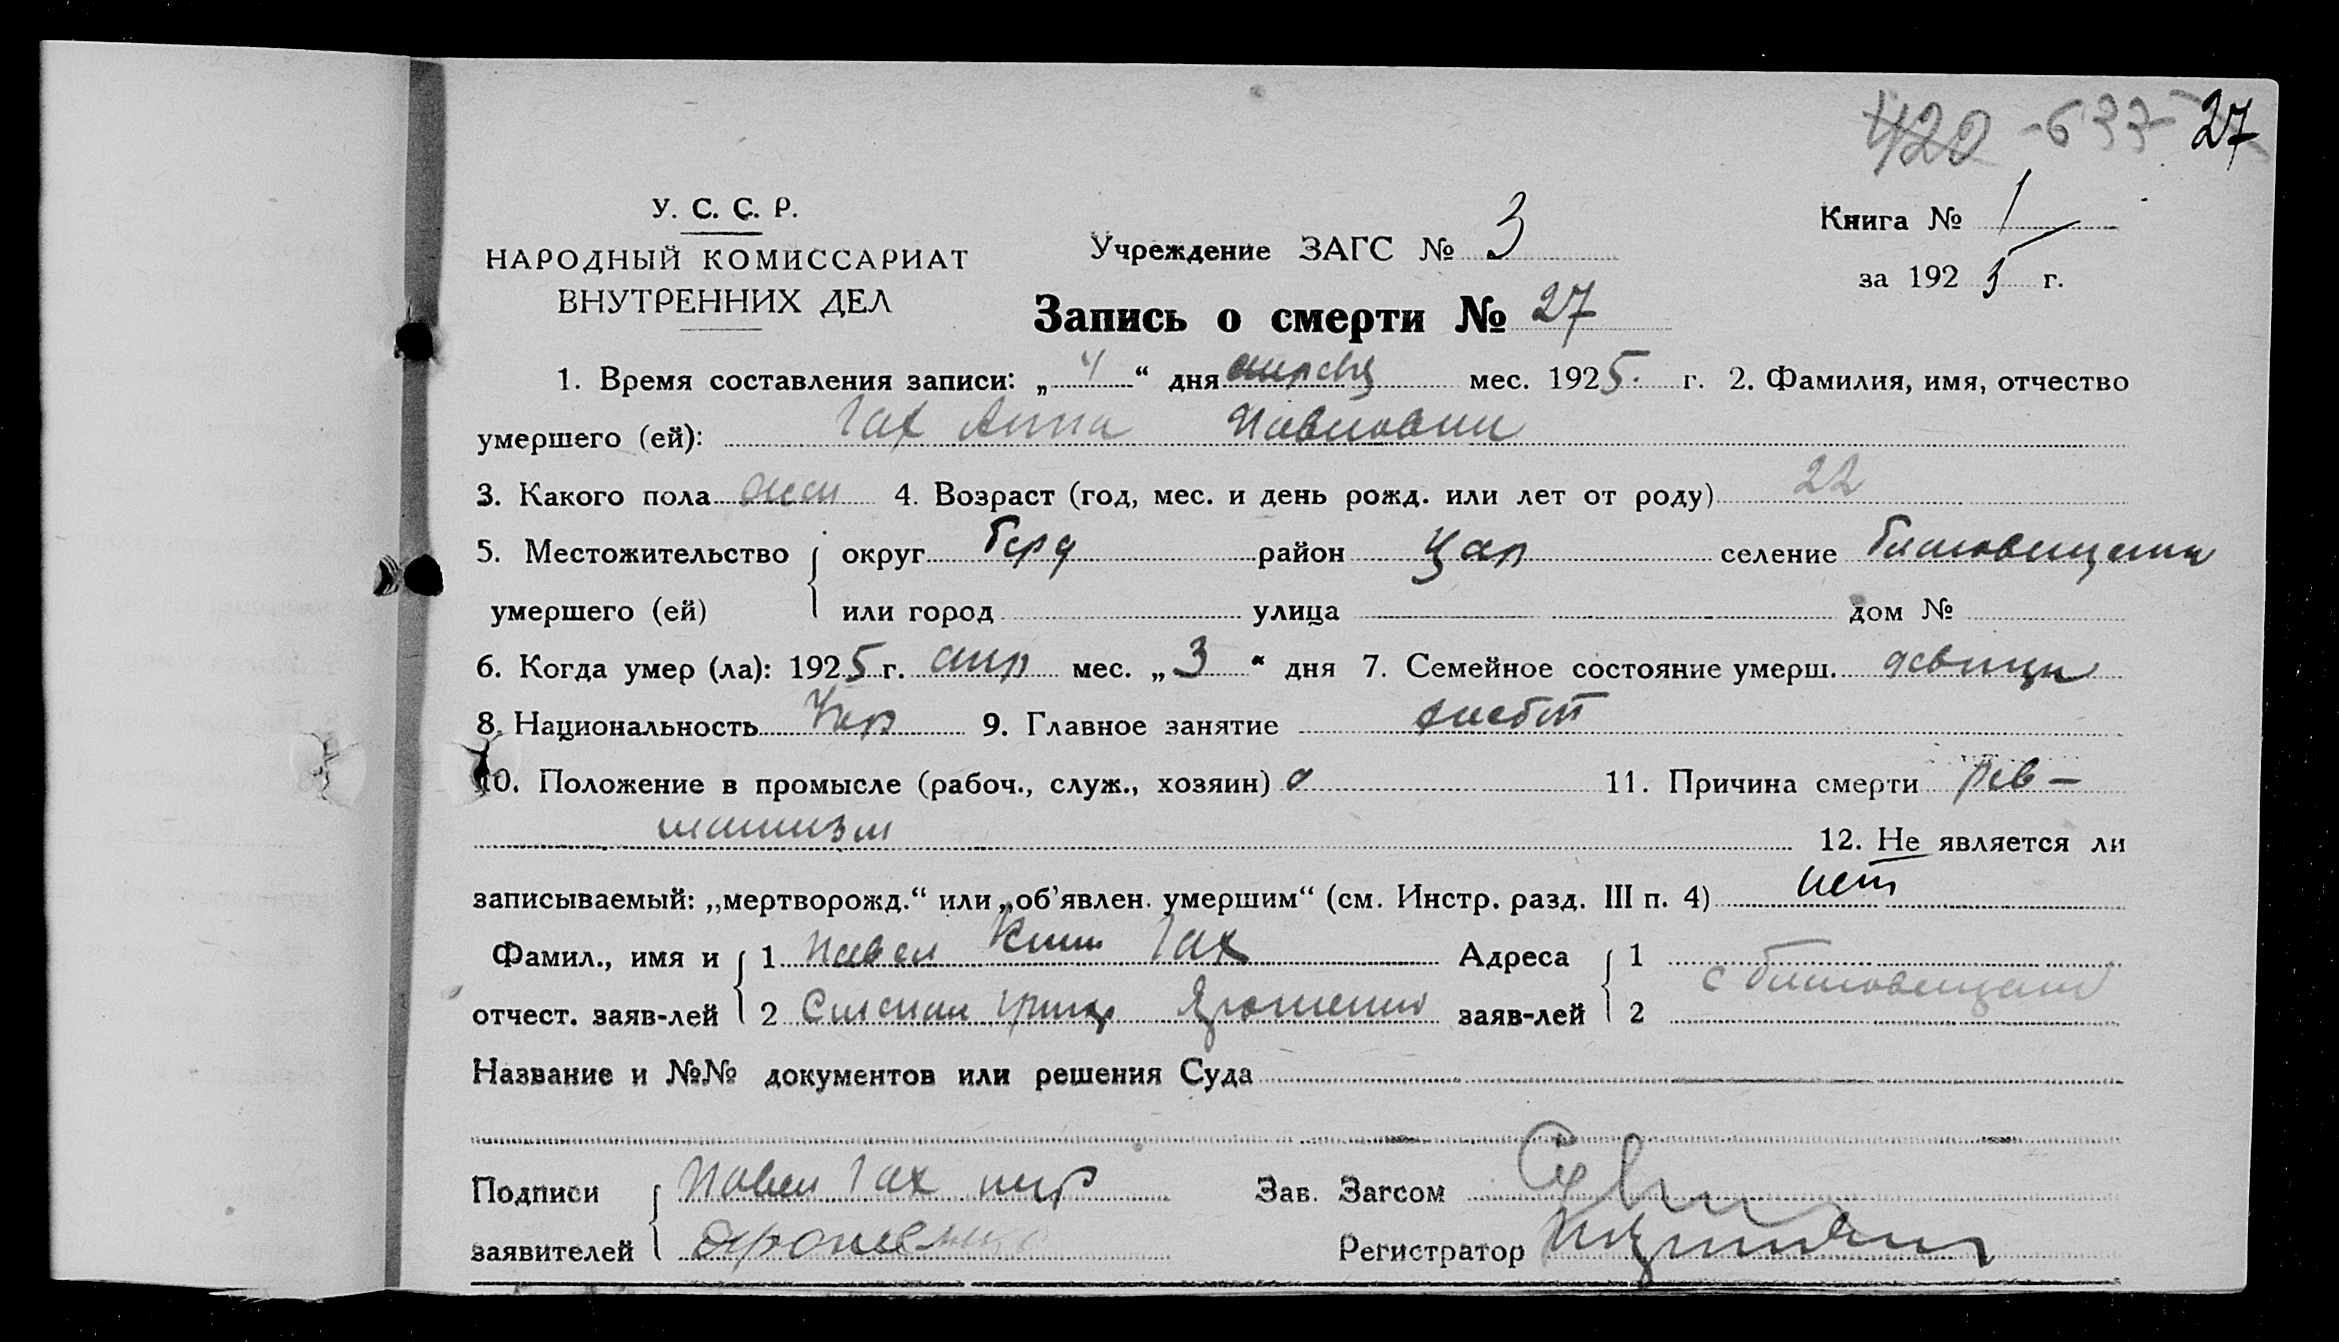 420 - 637 27
У. С. С. Р.
НАРОДНЫЙ КОМИССАРИАТ
ВНУТРЕННИХ ДЕЛ
Учреждение ЗАГС № 3
Книга № 1
за 1925 г.
Запись о смерти № 27
1. Время составления записи: „ 4 “ дня апреля мес. 1925 г. 2. Фамилия, имя, отчество
умершего (ей): Гах Анна Павловна
3. Какого пола жен 4. Возраст (год, мес. и день рожд. или лет от роду) 22
5. Местожительство округ Берд район Цар селение
умершего (ей) или город улица дом №
6. Когда умер (ла): 1925 г. апр мес. „ 3 “ дня 7. Семейное состояние умерш. девица
8. Национальность Укр 9. Главное занятие хлебоп
10. Положение в промысле (рабоч., служ., хозяин) 11. Причина смерти рев-
матизм 12. Не является ли
записываемый: „мертворожд.“ или „об’явлен. умершим“ (см. Инстр. разд. III п. 4) нет
Фамил., имя и 1 Павел Гах Адреса 1
отчест. заяв-лей 2 Григор Ярошенко заяв-лей 2
Название и №№ документов или решения Суда
Подписи Павел Гах Зав. Загсом
заявителей Ярошенко Регистратор